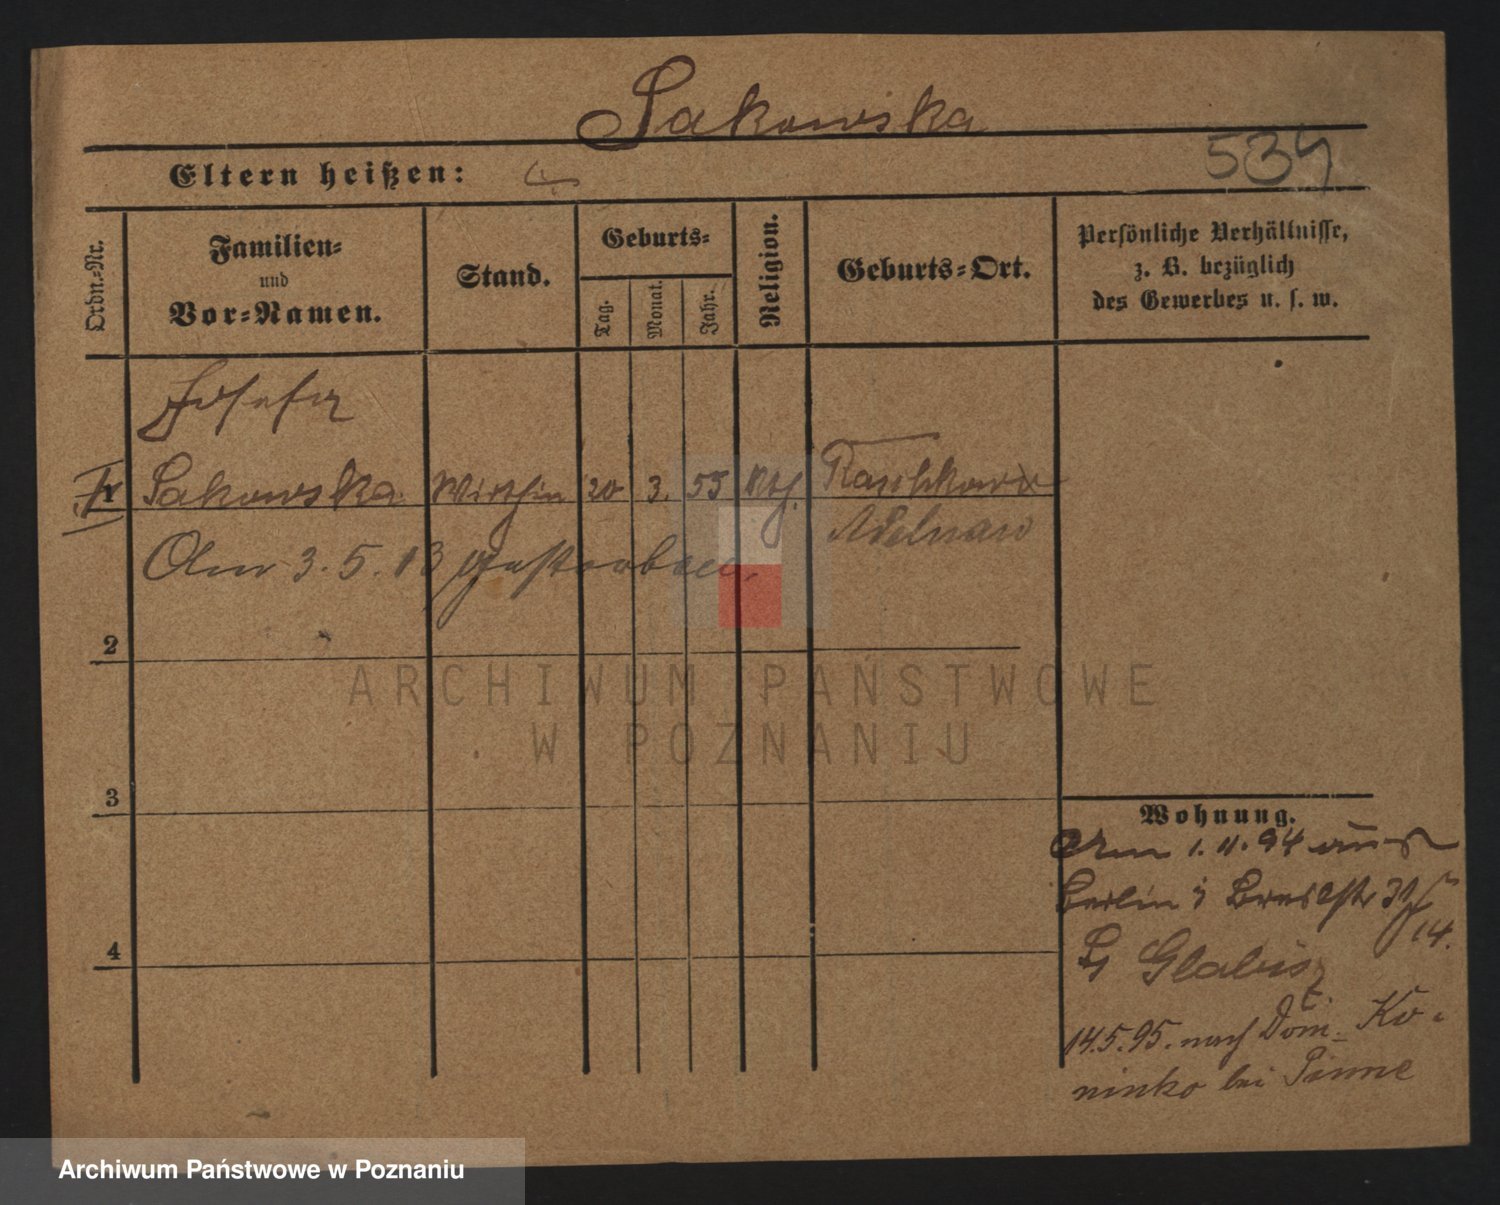 Sakowska
Eltern heißen:
534
Ordn.-Nr.
Familien-
und
Vor-Namen.
Stand.
Geburts-
Tag.
Monat.
Jahr.
Religion.
Geburts-Ort.
Persönliche Verhältnisse,
z. B. bezüglich
des Gewerbes u. s. w.
Josefa
Sakowska Wirthin 20 3. 55 Kth. Raschkow
Adelnau
Am 3.5.13 gestorben.
2
3
4
Wohnung.
Am 1.11.94 aus
Berlin
14.
Glabisz
14.5.95. nach Dom. Ko-
ninko bei Pinne
ARCHIWUM PAŃSTWOWE
W POZNANIU
Archiwum Państwowe w Poznaniu